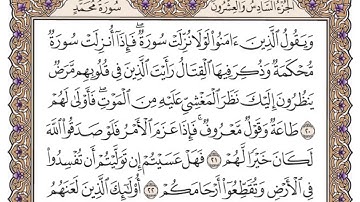 الجزء السادس والعشرون سورة محمد
وَيَقُولُ الَّذِينَ ءَامَنُوا لَوْلَا نُزِّلَتْ سُورَةٌ ۖ فَإِذَا أُنزِلَتْ سُورَةٌ
مُّحْكَمَةٌ وَذُكِرَ فِيهَا الْقِتَالُ رَأَيْتَ الَّذِينَ فِي قُلُوبِهِم مَّرَضٌ
يَنظُرُونَ إِلَيْكَ نَظَرَ الْمَغْشِيِّ عَلَيْهِ مِنَ الْمَوْتِ ۖ فَأَوْلَىٰ لَهُمْ ٢٠
طَاعَةٌ وَقَوْلٌ مَّعْرُوفٌ ۚ فَإِذَا عَزَمَ الْأَمْرُ فَلَوْ صَدَقُوا اللَّهَ
لَكَانَ خَيْرًا لَّهُمْ ٢١ فَهَلْ عَسَيْتُمْ إِن تَوَلَّيْتُمْ أَن تُفْسِدُوا
فِي الْأَرْضِ وَتُقَطِّعُوا أَرْحَامَكُمْ ٢٢ أُولَٰئِكَ الَّذِينَ لَعَنَهُمُ